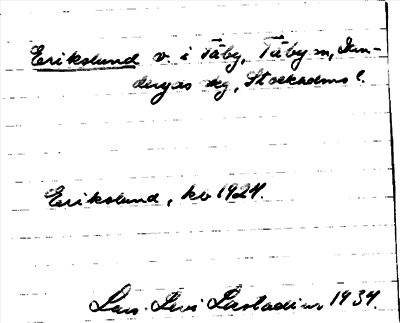 Erikslund v. i Täby, Täby sn, Dan-
deryds skg, Stockholms l.
Erikslund, kb 1924.
Lars-Levi Læstadius 1934.